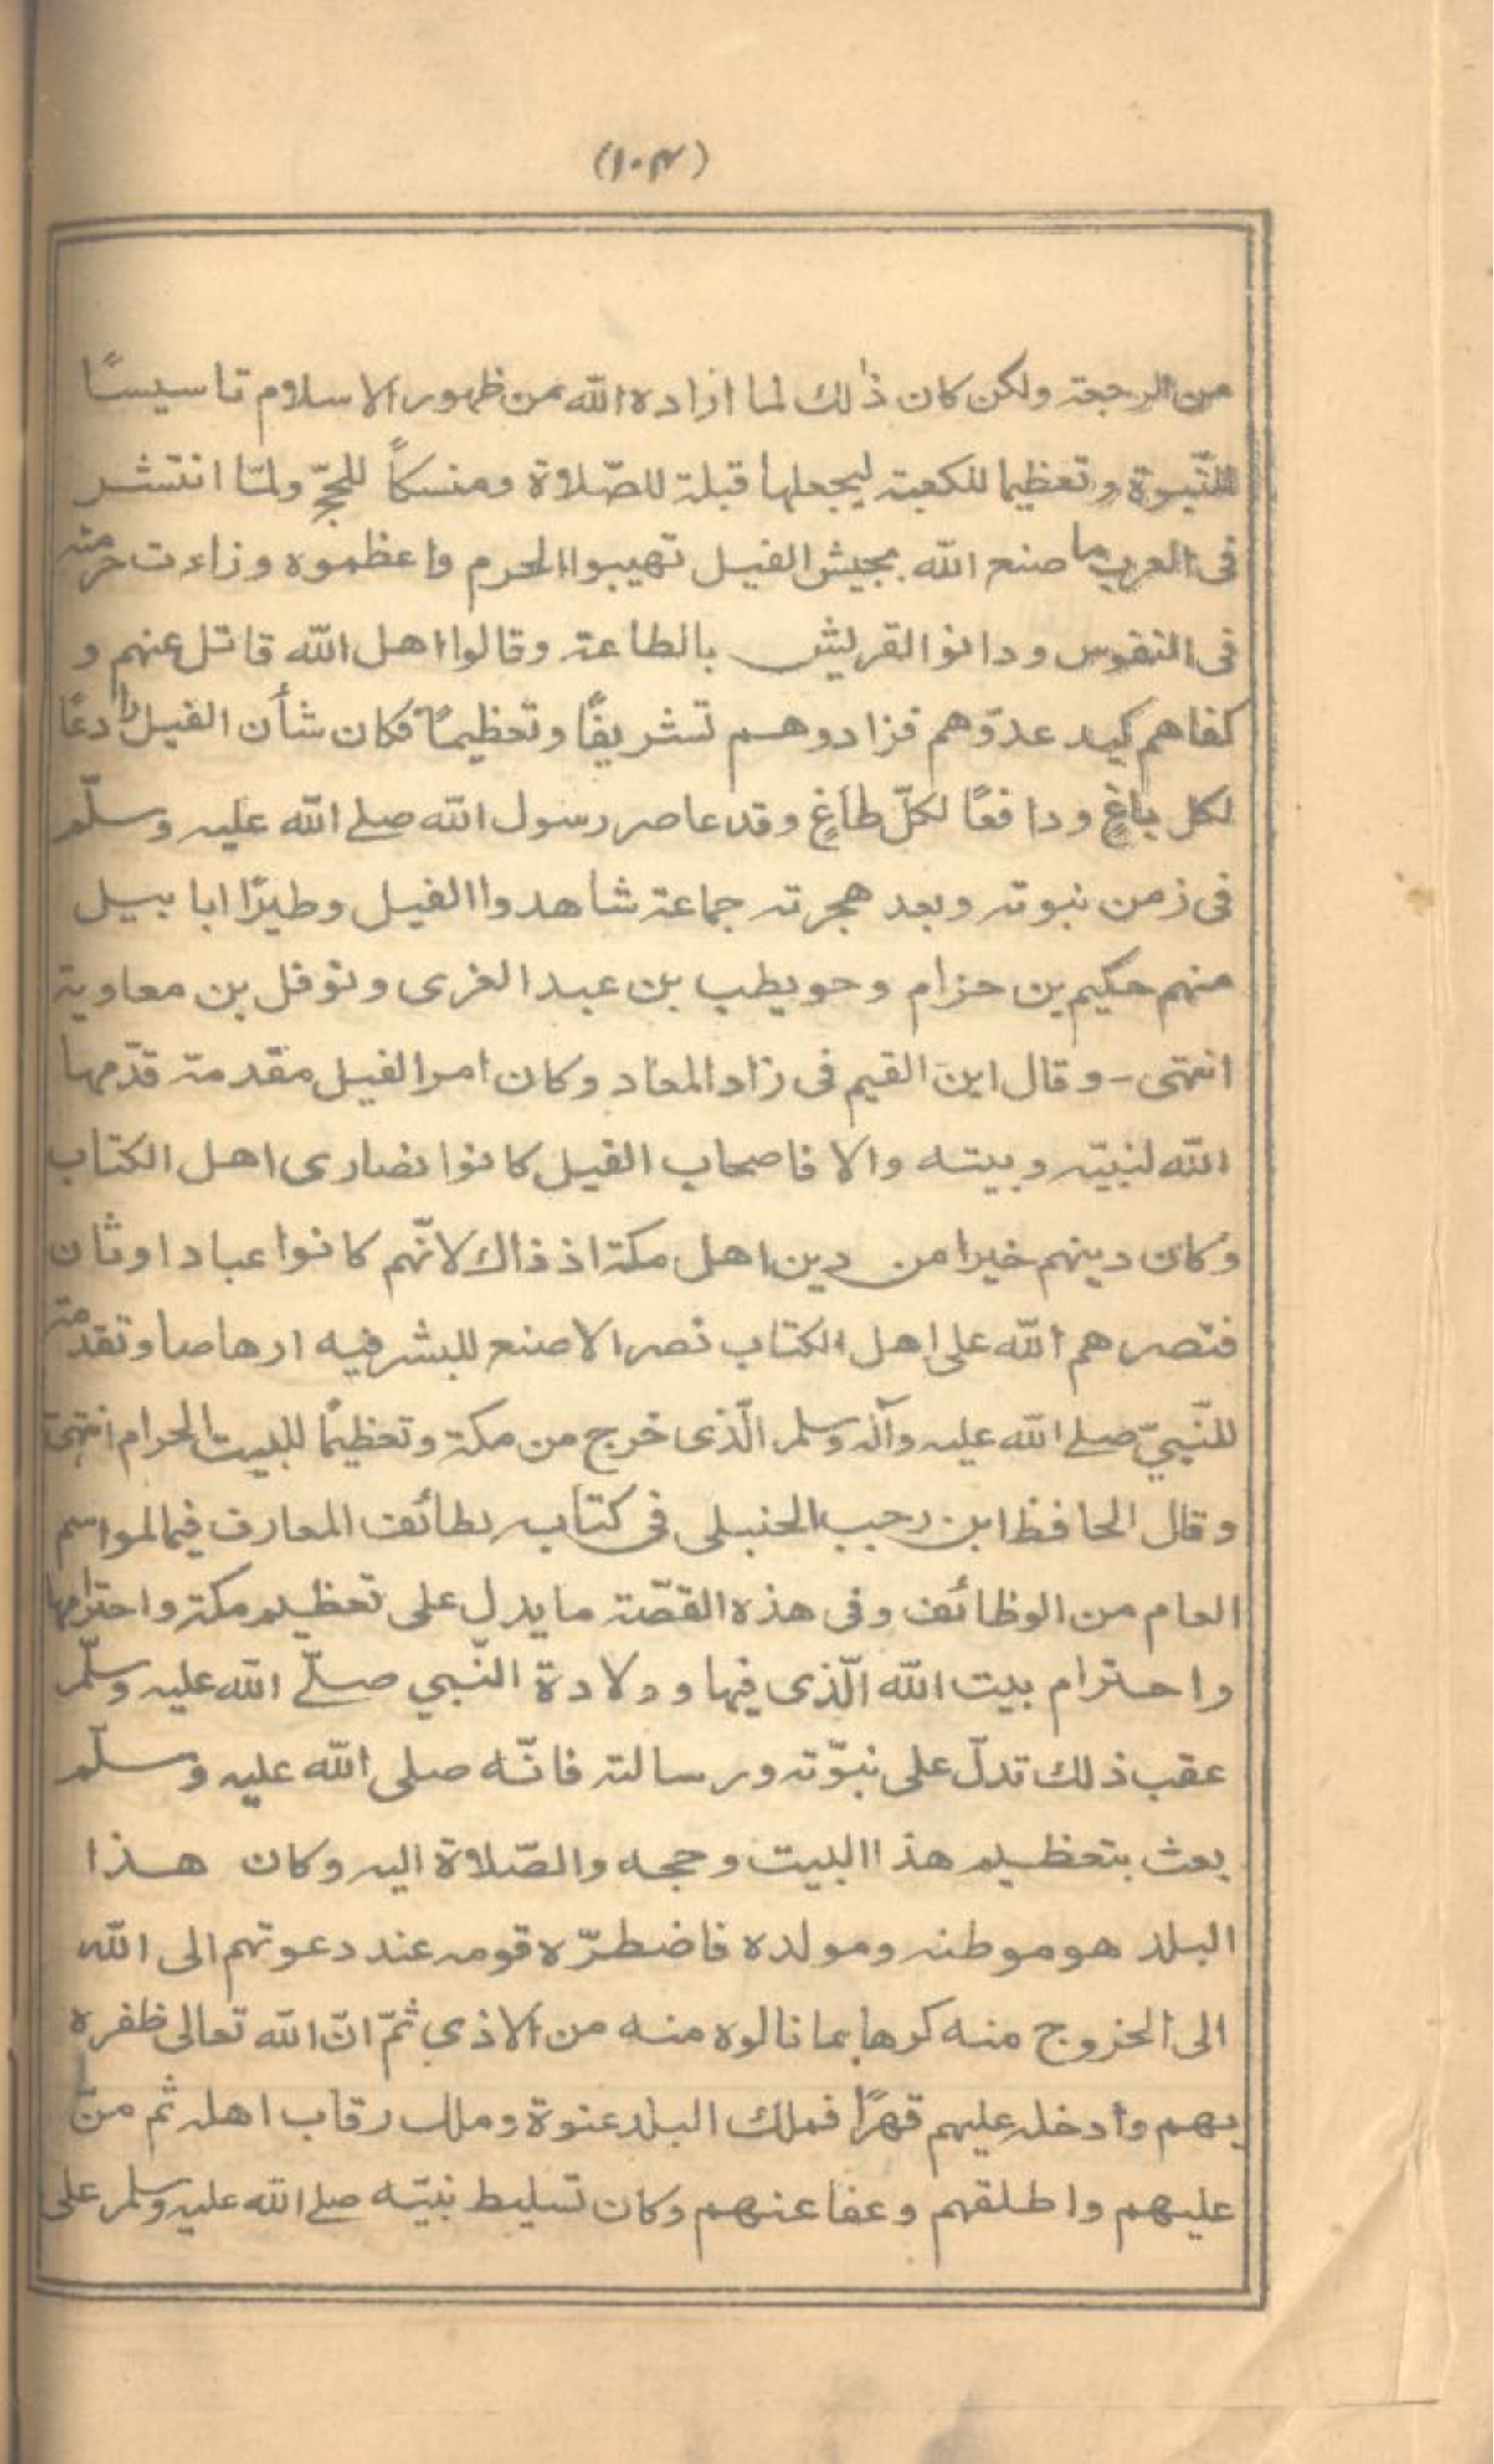 (١٠٣)
من الرجعة ولكن كان ذٰلك لما اراده الله من ظهور الاسلام تاسيسًا
للنّبوة وتعظيما للكعبة ليجعلها قبلة للصّلاة ومنسكاً للحجّ ولمّا انتشر
فى العرب ما صنع الله بجيش الفيل تهيبوا الحرم واعظموه وزادت حرمته
فى النفوس ودانوا القريش بالطاعة وقالوا اهل الله قاتل عنهم و
كفاهم كيد عدوّهم فزادوهم تشريفًا وتعظيمًا فكان شأن الفيل رادعًا
لكل باغٍ ودافعًا لكلّ طاغٍ وقد عاصر رسول الله صلے الله عليه وسلّم
فى زمن نبوته وبعد هجرته جماعة شاهدوا الفيل وطيرًا ابابيل
منهم حكيم بن حزام وحويطب بن عبد الغرى ونوفل بن معاوية
انتهى - وقال ابن القيم فى زاد المعاد وكان امر الفيل مقدمة قدّمها
الله لنبيّه وبيته والا فاصحاب الفيل كانوا نصارى اهل الكتاب
وكان دينهم خيرا من دين اهل مكة اذ ذاك لانّهم كانوا عباد اوثان
فنصرهم الله على اهل الكتاب نصرا لا صنع للبشر فيه ارهاصا وتقدمة
للنّبيّ صلے الله عليه وآله وسلم الّذى خرج من مكة وتعظيمًا للبيت الحرام انتهى
وقال الحافظ ابن رجب الحنبلى فى كتابه لطائف المعارف فيما لمواسم
العام من الوظائف وفى هذه القصّة ما يدل على تعظيم مكة واحترامها
واحترام بيت الله الّذى فيها وولادة النّبي صلّے الله عليه وسلّم
عقب ذلك تدلّ على نبوّته ورسالته فانّه صلى الله عليه وسلّم
بعث بتعظيم هذا البيت وحجه والصّلاة اليه وكان هذا
البلد هو موطنه ومولده فاضطرّه قومه عند دعوتهم الى الله
الى الخروج منه كرها بما نالوه منه من الاذى ثمّ انّ الله تعالى ظفره
بهم وأدخله عليهم قهرًا فملك البلد عنوة وملك رقاب اهله ثم منّ
عليهم واطلقهم وعفا عنهم وكان تسليط نبيّه صلے الله عليه وسلم على